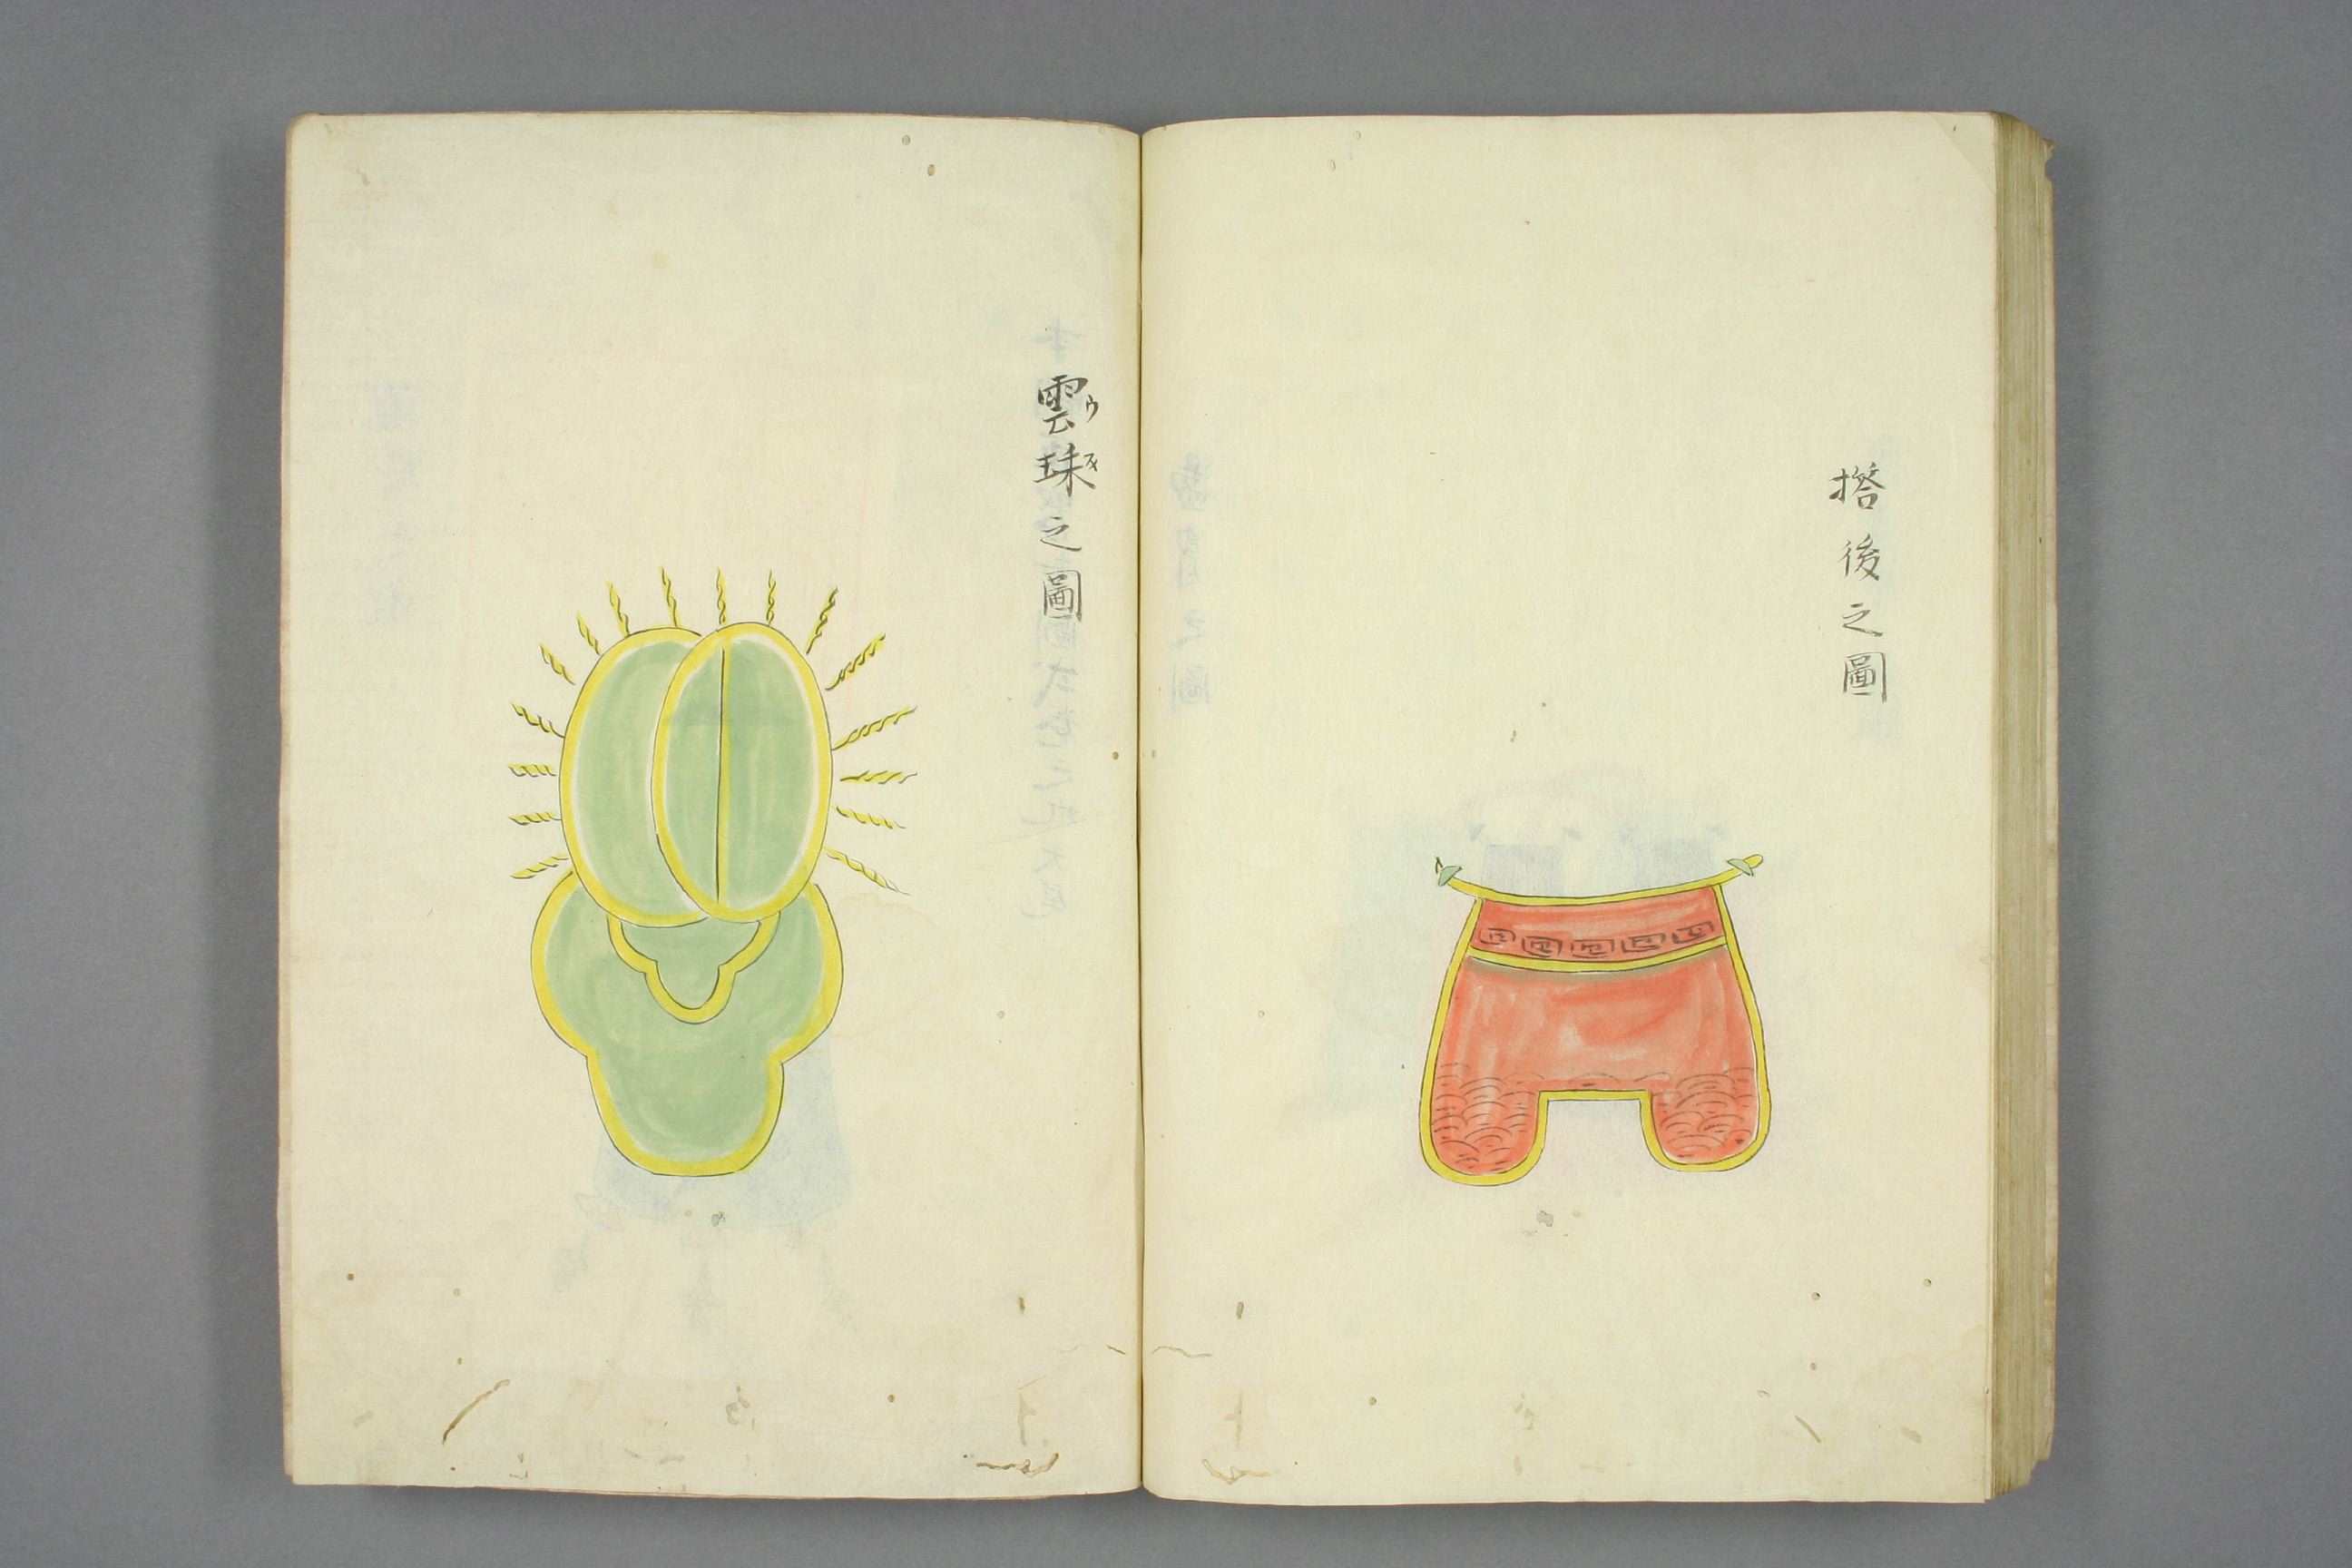 搭後之圖
雲珠之圖
ウス